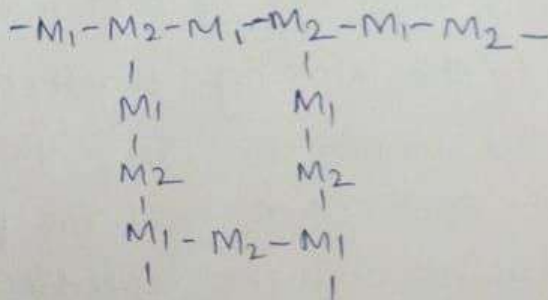 -M1-M2-M1-M2-M1-M2-
M1 M1
M2 M2
M1-M2-M1